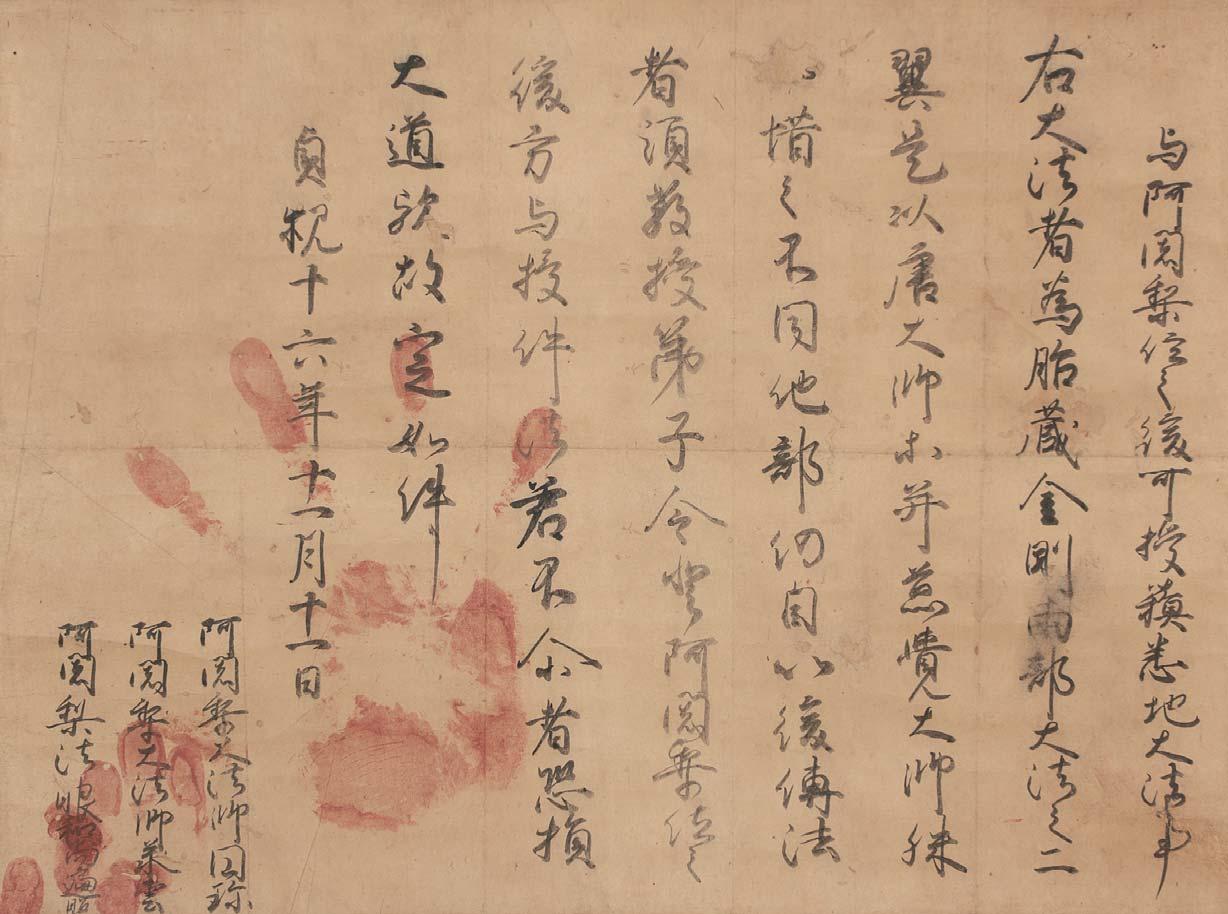 与阿闍梨位之後可授蘇悉地大法事
右大法者為胎蔵金剛両部大法之二
翼是以唐大師等并慈覺大師殊
惜之不同他部仍自以後傳法
者須教授弟子令登阿闍梨位之
後方与授件法若不尒者恐損
大道歟故定如件
貞觀十六年十一月十一日
阿闍梨大法師圓珍
阿闍梨大法師承雲
阿闍梨法眼和尚遍昭